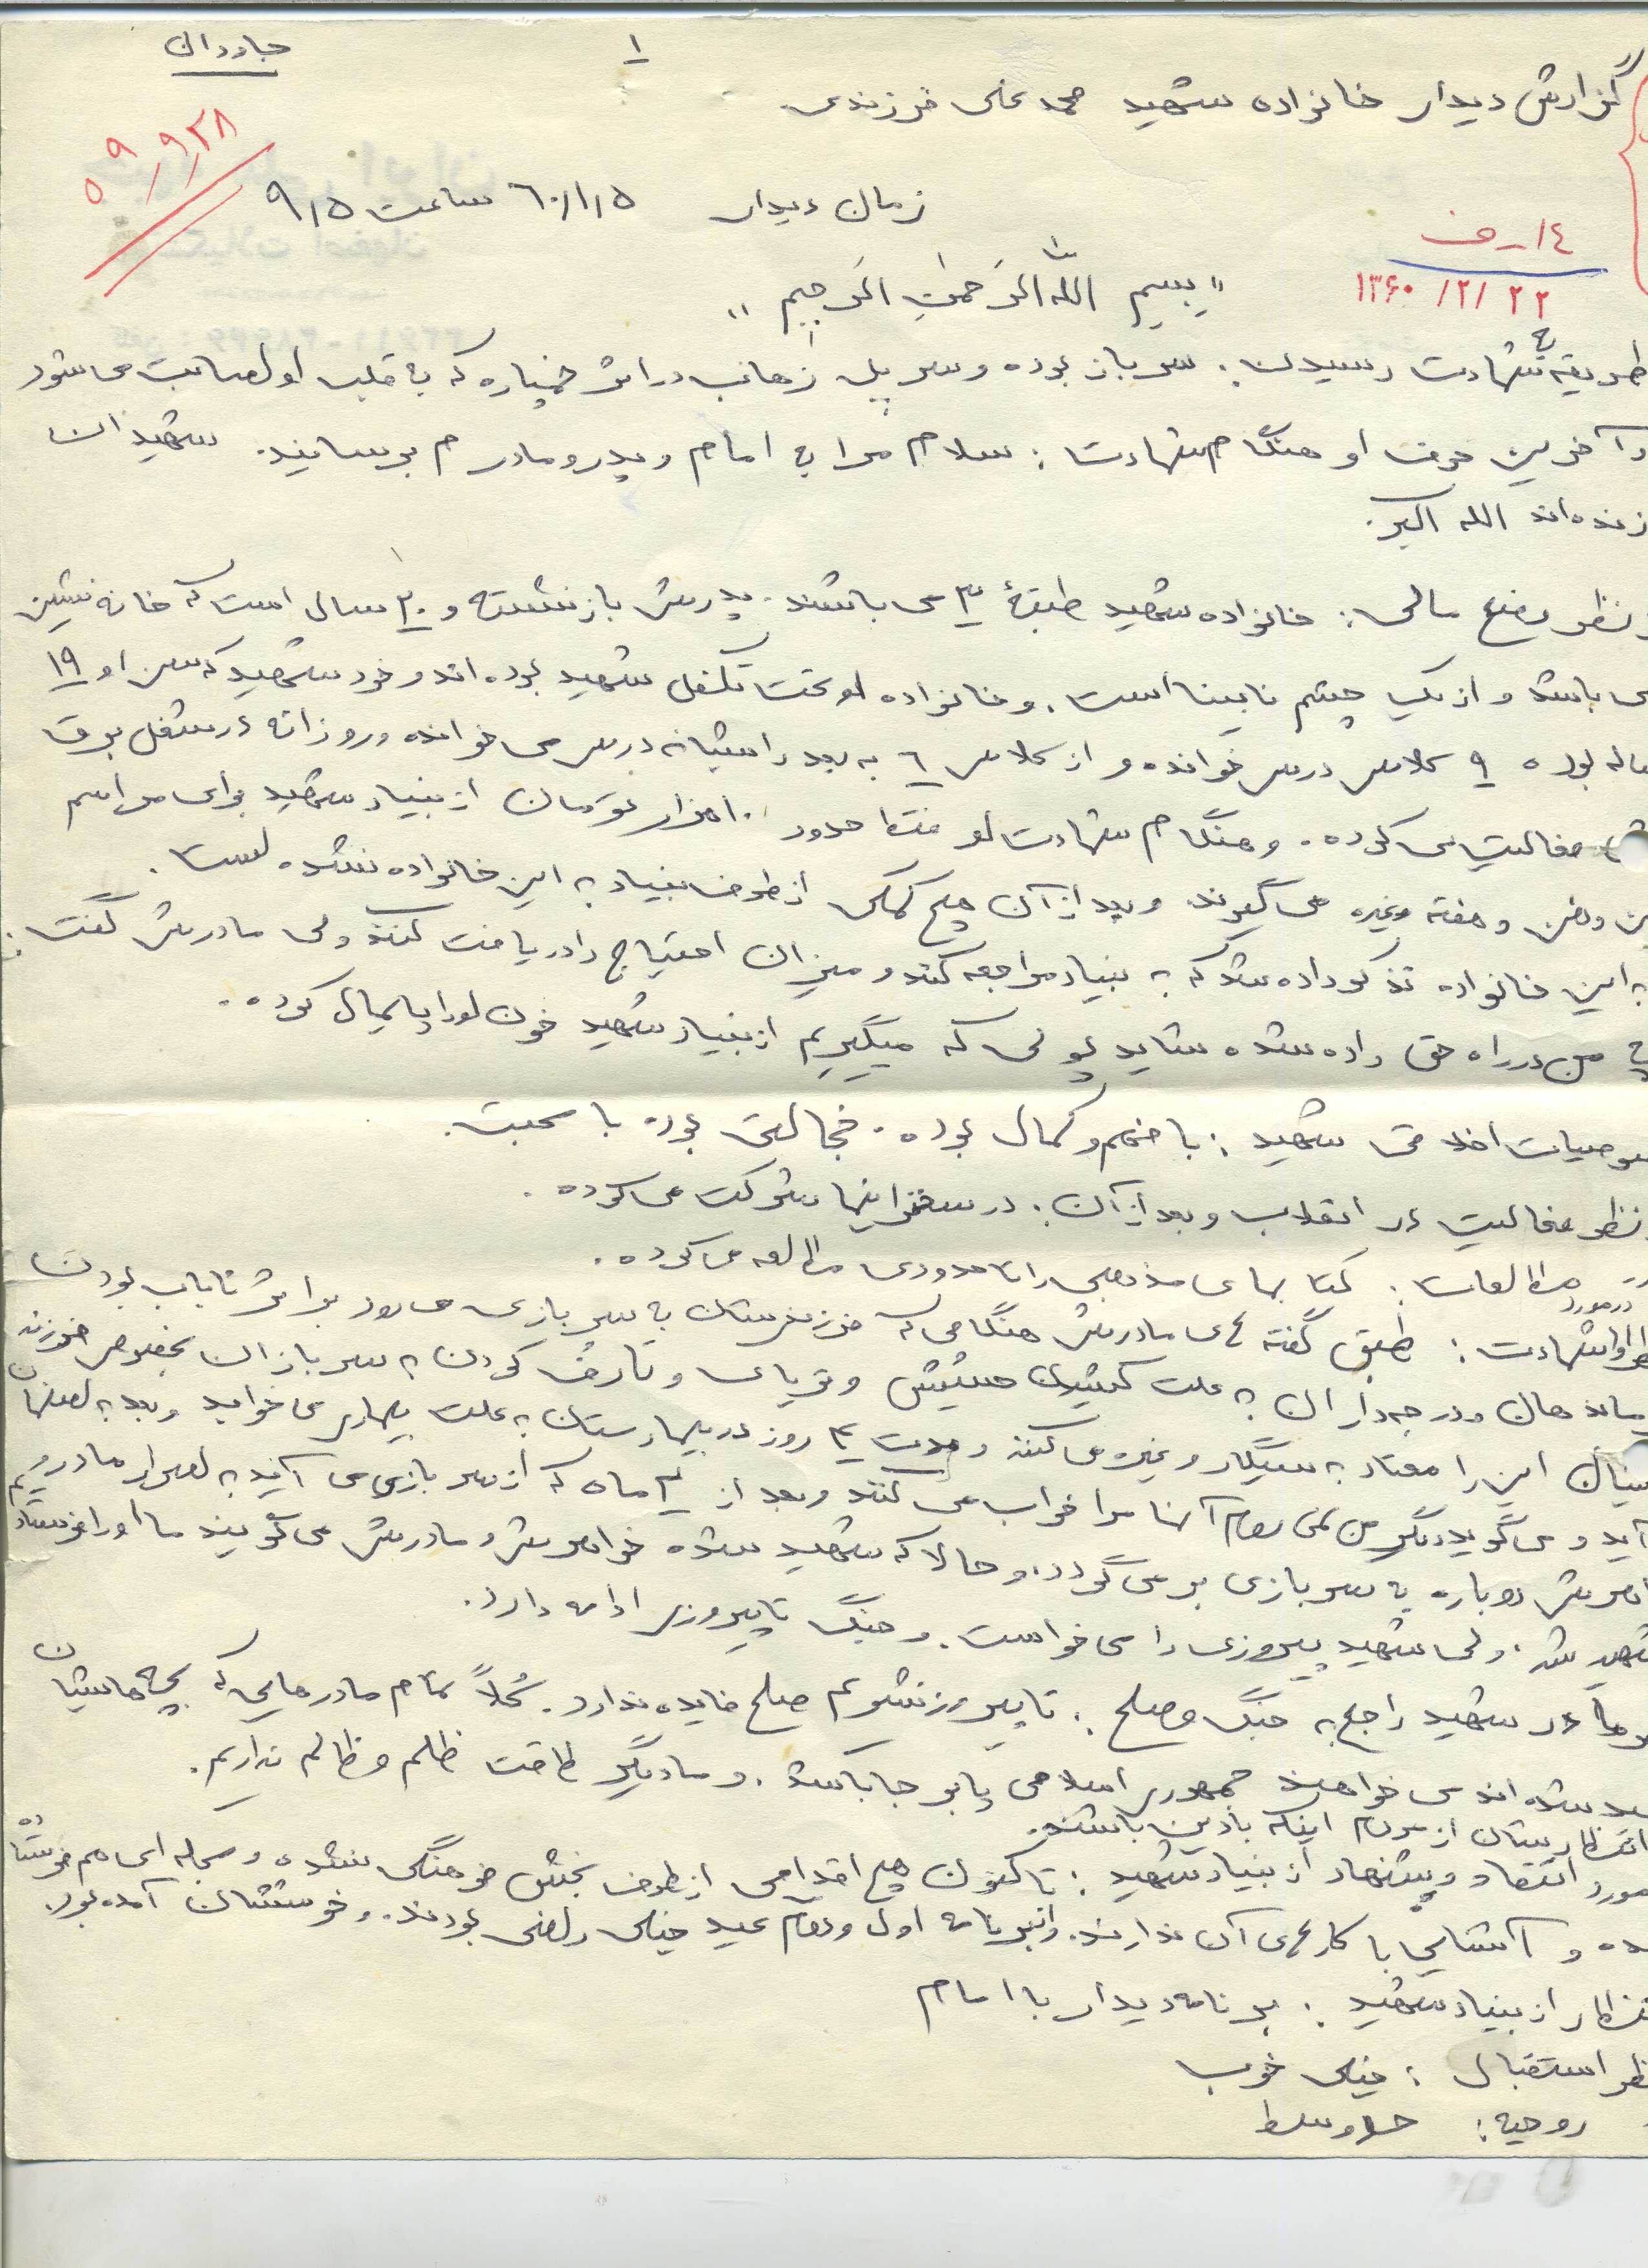 جاودان
۱
گزارش دیدار خانواده شهید محمد علی فرزندی
۵۹/۹/۲۸
زمان دیدار ۶۰/۱/۵ ساعت ۹/۵
۱۴ـ ف
۱۳۶۰/۲/۲۲
"بسم الله الرحمن الرحیم"
طریقه شهادت رسیدن: سرباز بوده و سرپل ذهاب در اثر خمپاره که به قلب او اصابت می شود
و آخرین حرف او هنگام شهادت: سلام مرا به امام و پدر و مادرم برسانید. شهیدان
زنده اند الله اکبر.
نظر وضع مالی: خانواده شهید طبقهٔ ۳ می باشند. پدرش بازنشسته و ۲۰ سال است که خانه نشین
می باشد و از یک چشم نابینا است. و خانواده او تحت تکفل شهید بوده اند و خود شهید که سن او ۱۹
ساله بوده ۹ کلاس درس خوانده و از کلاس ۶ به بعد را شبانه درس می خوانده و روزانه در شغل برق
فعالیت می کرده. و هنگام شهادت او فقط حدود ۱۰ هزار تومان از بنیاد شهید برای مراسم
دفن و هفته و غیره می گیرند و بعد از آن هیچ کمکی از طرف بنیاد به این خانواده نشده است.
به این خانواده تذکر داده شد که به بنیاد مراجعه کند و میزان احتیاج را دریافت کنند ولی مادرش گفت:
من در راه حق داده شده شاید پولی که میگیریم از بنیاد شهید خون او را پایمال کرده.
خصوصیات اخلاقی شهید: با فهم و کمال بوده. خجالتی بوده با محبت.
نظر فعالیت در انقلاب و بعد از آن: در سخنرانیها شرکت می کرده.
مطالعات: کتابهای مذهبی را تا حدودی مطالعه می کرده.
در مورد شهادت: طبق گفته های مادرش هنگامی که فرزندشان به سربازی می رود براش ناباب بودن
فرماندهان و درجه داران به علت کشیدن حشیش و تریاک و تعارف کردن به سربازان بخصوص فرزند
این را معتاد به سیگار و غیره می کنند و مدت ۴ روز در بیمارستان به علت بیماری می خوابد و بعد به اصفهان
آید و می گوید دیگر من نمی روم آنها مرا خراب می کنند و بعد از ۲ ماه که از سربازی می آید به اصرار مادر و
دوباره به سربازی بر می گردد. و حالا که شهید شده خواهرش و مادرش می گویند ما او را فرستادیم
شهید شد. ولی شهید پیروزی را می خواست. و جنگ تا پیروزی ادامه دارد.
مادر شهید راجع به جنگ و صلح: تا پیروز نشویم صلح فایده ندارد. کلاً تمام مادرهایی که بچه هایشان
شهید شده اند می خواهند جمهوری اسلامی پابرجا باشد. و ما دیگر طاقت ظلم و ظالم نداریم.
انتظارشان از مردم اینکه با دین باشند.
مورد انتقاد و پیشنهاد از بنیاد شهید: تا کنون هیچ اقدامی از طرف بخش فرهنگی نشده و مجله ای هم فرستاده
نشده و آشنایی با کارهای آن ندارند. از برنامه اول و دوم عید خیلی راضی بودند. و خوششان آمده بود.
انتظار از بنیاد شهید: برنامه دیدار با امام
نظر استقبال: خیلی خوب
روحیه: متوسط